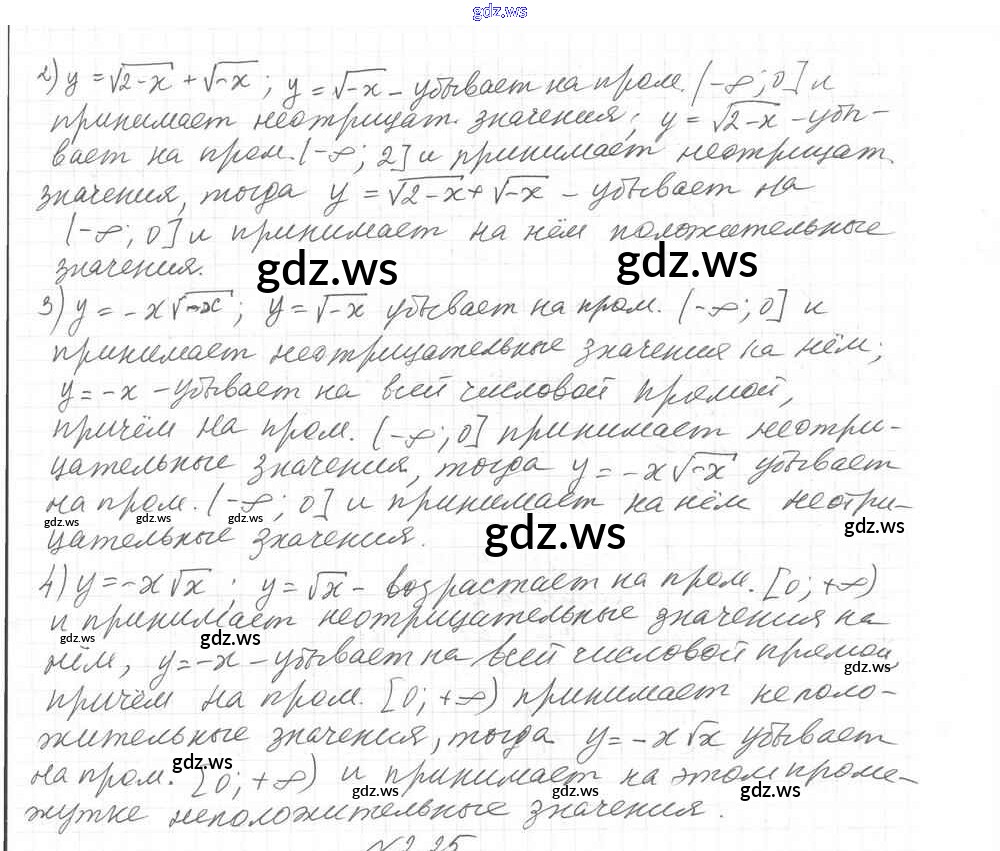 gdz.ws
2) y = √2-x + √-x ; y = √-x - убывает на пром. (-∞; 0] и
принимает неотрицат. значения; y = √2-x - убы-
вает на пром. (-∞; 2] и принимает неотрицат.
значения, тогда y = √2-x + √-x - убывает на
(-∞; 0] и принимает на нём положительные
значения.
gdz.ws gdz.ws
3) y = -x√-x ; y = √-x убывает на пром. (-∞; 0] и
принимает неотрицательные значения на нём;
y = -x - убывает на всей числовой прямой,
причём на пром. (-∞; 0] принимает неотри-
цательные значения, тогда y = -x√-x убывает
на пром. (-∞; 0] и принимает на нём неотри-
gdz.ws gdz.ws gdz.ws gdz.ws gdz.ws
цательные значения.
4) y = -x√x ; y = √x - возрастает на пром. [0; +∞)
и принимает неотрицательные значения на
gdz.ws gdz.ws
нём, y = -x - убывает на всей числовой прямой,
gdz.ws
причём на пром. [0; +∞) принимает неполо-
жительные значения, тогда y = -x√x убывает
gdz.ws
на пром. [0; +∞) и принимает на этом проме-
gdz.ws gdz.ws gdz.ws
жутке неположительные значения.
№2.25